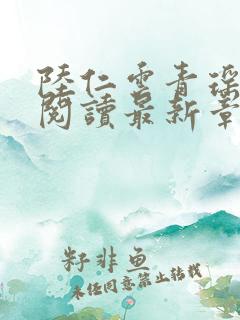 陸仁雲青瑤
閱讀最新章
籽非鱼
未经同意禁止转载